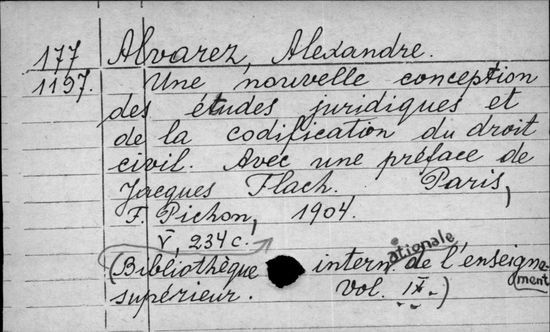 177 Alvarez, Alexandre.
1197. Une nouvelle conception
des études juridiques et
de la codification du droit
civil. Avec une préface de
Jacques Flach. Paris,
F. Pichon, 1904.
V, 234 c.
(Bibliothèque internationale de l'enseignement
supérieur. Vol. IX.)